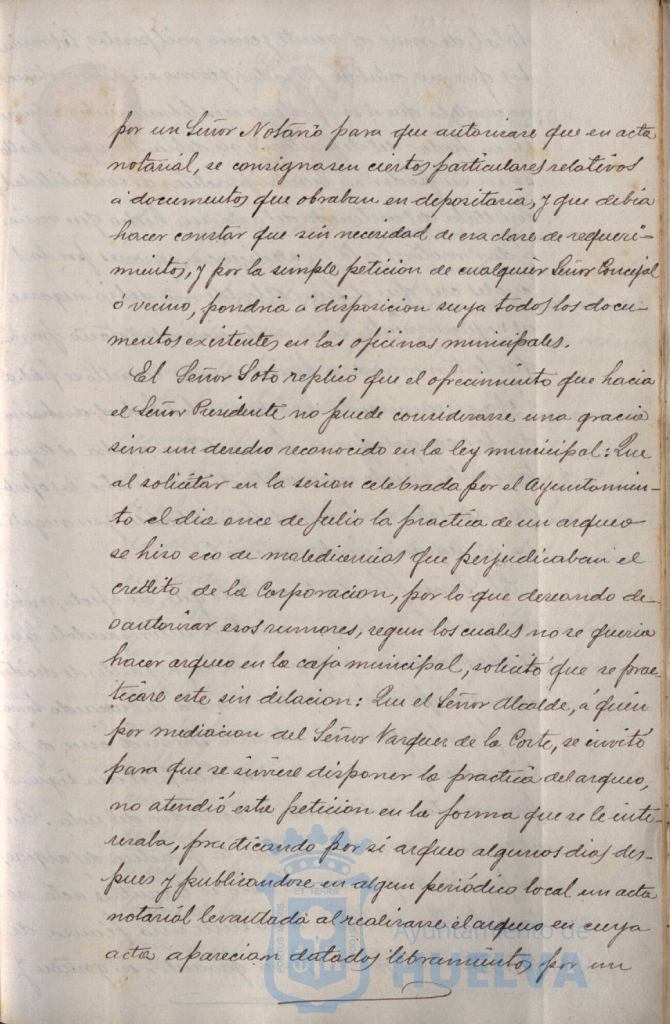 por un Señor Notario para que autorizase que en acta
notarial, se consignasen ciertos particulares relativos
á documentos que obraban en depositaria, y que debia
hacer constar que sin necesidad de esa clase de requeri-
mientos, y por la simple peticion de cualquier Señor Concejal
ó vecino, pondria á disposicion suya todos los docu-
mentos existentes en las oficinas municipales.
El Señor Soto replicó que el ofrecimiento que hacia
el Señor Presidente no puede considerarse una gracia
sino un derecho reconocido en la ley municipal: Que
al solicitar en la sesion celebrada por el Ayuntamien-
to el dia once de Julio la practica de un arqueo
se hiso eco de maledicencias que perjudicaban el
credito de la Corporacion, por lo que deseando de-
sautorizar esos rumores, segun los cuales no se queria
hacer arqueo en la caja municipal, solicitó que se prac-
ticase este sin dilacion: Que el Señor Alcalde, á quien
por mediacion del Señor Vazquez de la Corte, se invitó
para que se sirviese disponer la practica del arqueo,
no atendió esta peticion en la forma que se le inte-
resaba, practicando por si arqueo algunos dias des-
pues y publicandose en algun periódico local un acta
notarial levantada al realizarse el arqueo en cuya
acta aparecian datados libramientos por un
Ayuntamiento de
HUELVA